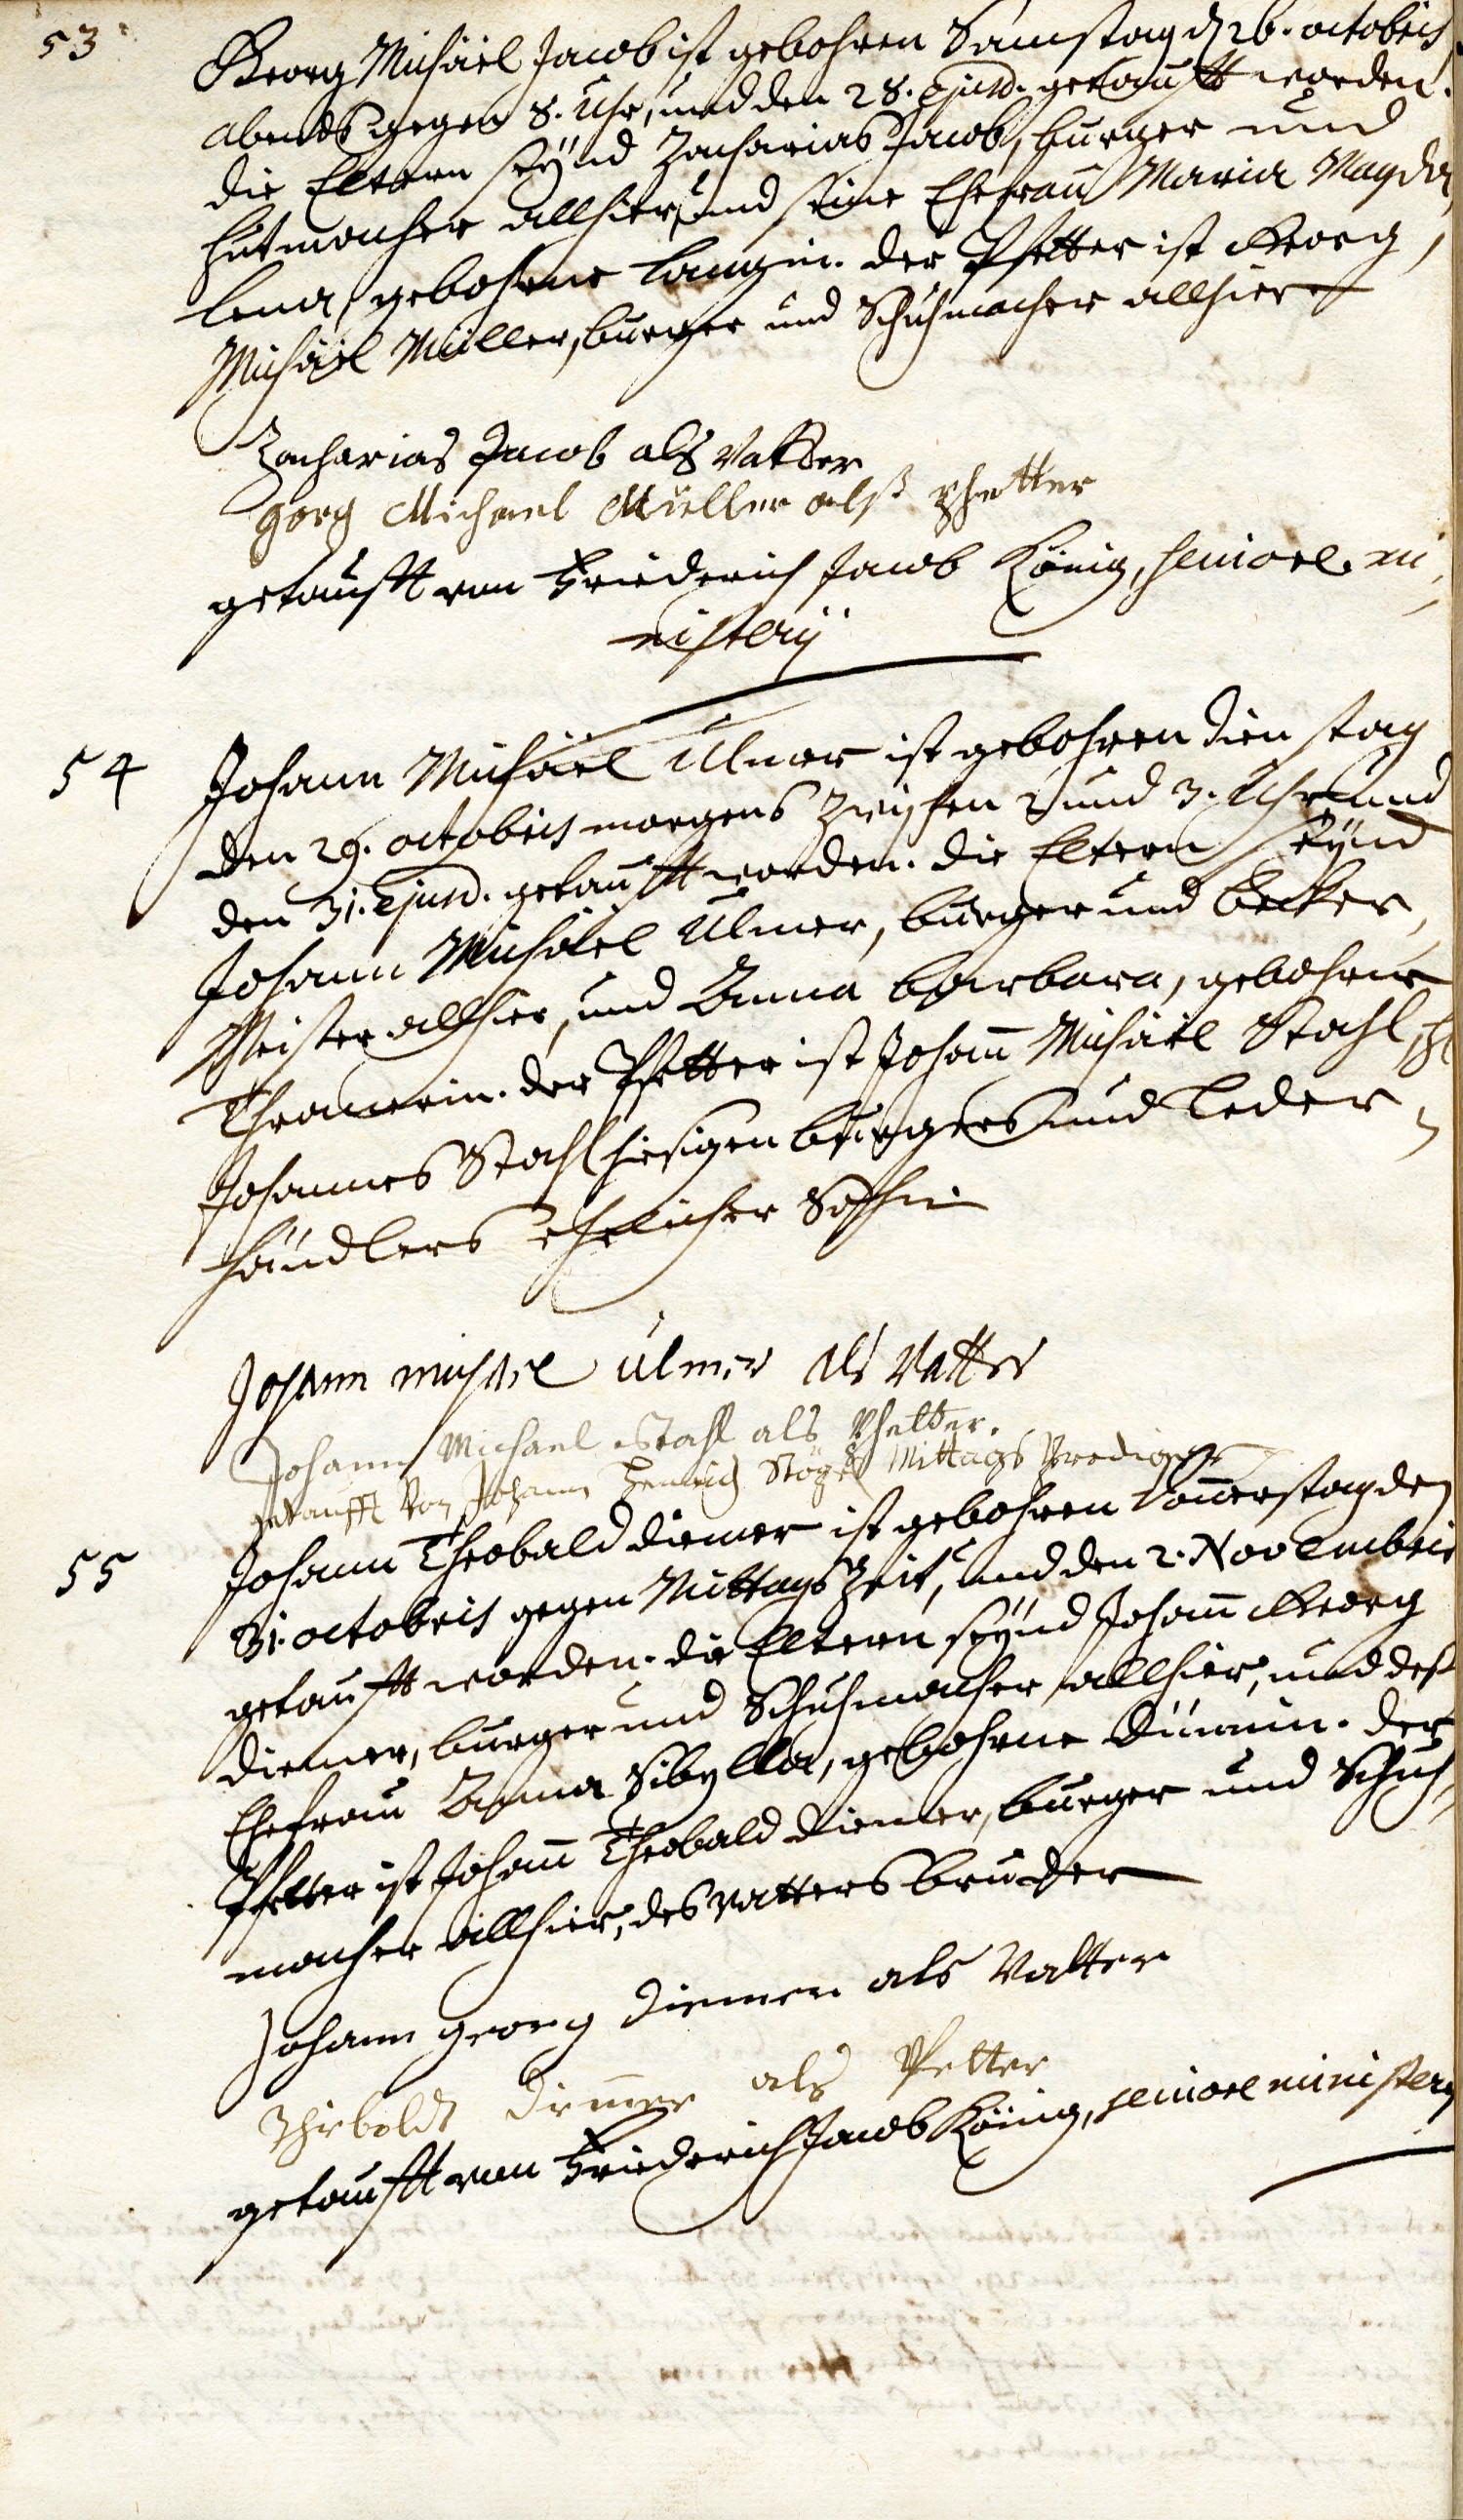 53 Georg Michäel Jacob ist gebohren Samstag d 26. octobris
abends gegen 8. Uhr, und den 28. Ejusd. getaufft worden.
die Eltern seynd Zacharias Jacob, burger und
Hutmacher allhier, und seine Ehefrau Maria Magda,
lena, gebohrne Langin. der Pfetter ist Georg,
Michäel Müller, burger und Schuhmacher allhier
Zacharias Jacob als Vatter
Gorg Michael Müller alß Phetter
getaufft von Friederich Jacob König, seniore. mi,
nisterij
54 Johann Michäel Ulmer ist gebohren dienstag
den 29. octobris morgens zwischen 2 und 3. Uhr, und
den 31. Ejusd. getaufft worden. die Eltern seynd
Johann Michäel Ulmer, burger und Becker,
Meister allhier, und Anna barbara, gebohrne
der Pfetter ist Johann Michäel Stahl,
Johannes Stahl hiesigen burgers und Leder,
händlers ehelicher Sohn
Johann michael ulmer als Vatter
Johann Michael Stahl als Phetter.
getaufft Von Johann Henrich Mittags Prediger
55 Johann Theobald diemer ist gebohren donnerstag den
31. octobris gegen Mittags Zeit, und den 2. Novembris
getaufft worden. die Eltern seynd Johann Georg
diemer, burger und Schuhmacher allhier, und deß
Ehefrau Anna Sibylla, gebohrne der
Pfetter ist Johann Theobald diemer, burger und Schuh,
macher allhier, des Vatters bruder
Johann georg diemer als Vatter
Thiboldt diemer als Petter
getaufft von Friederich Jacob König, seniore ministerij